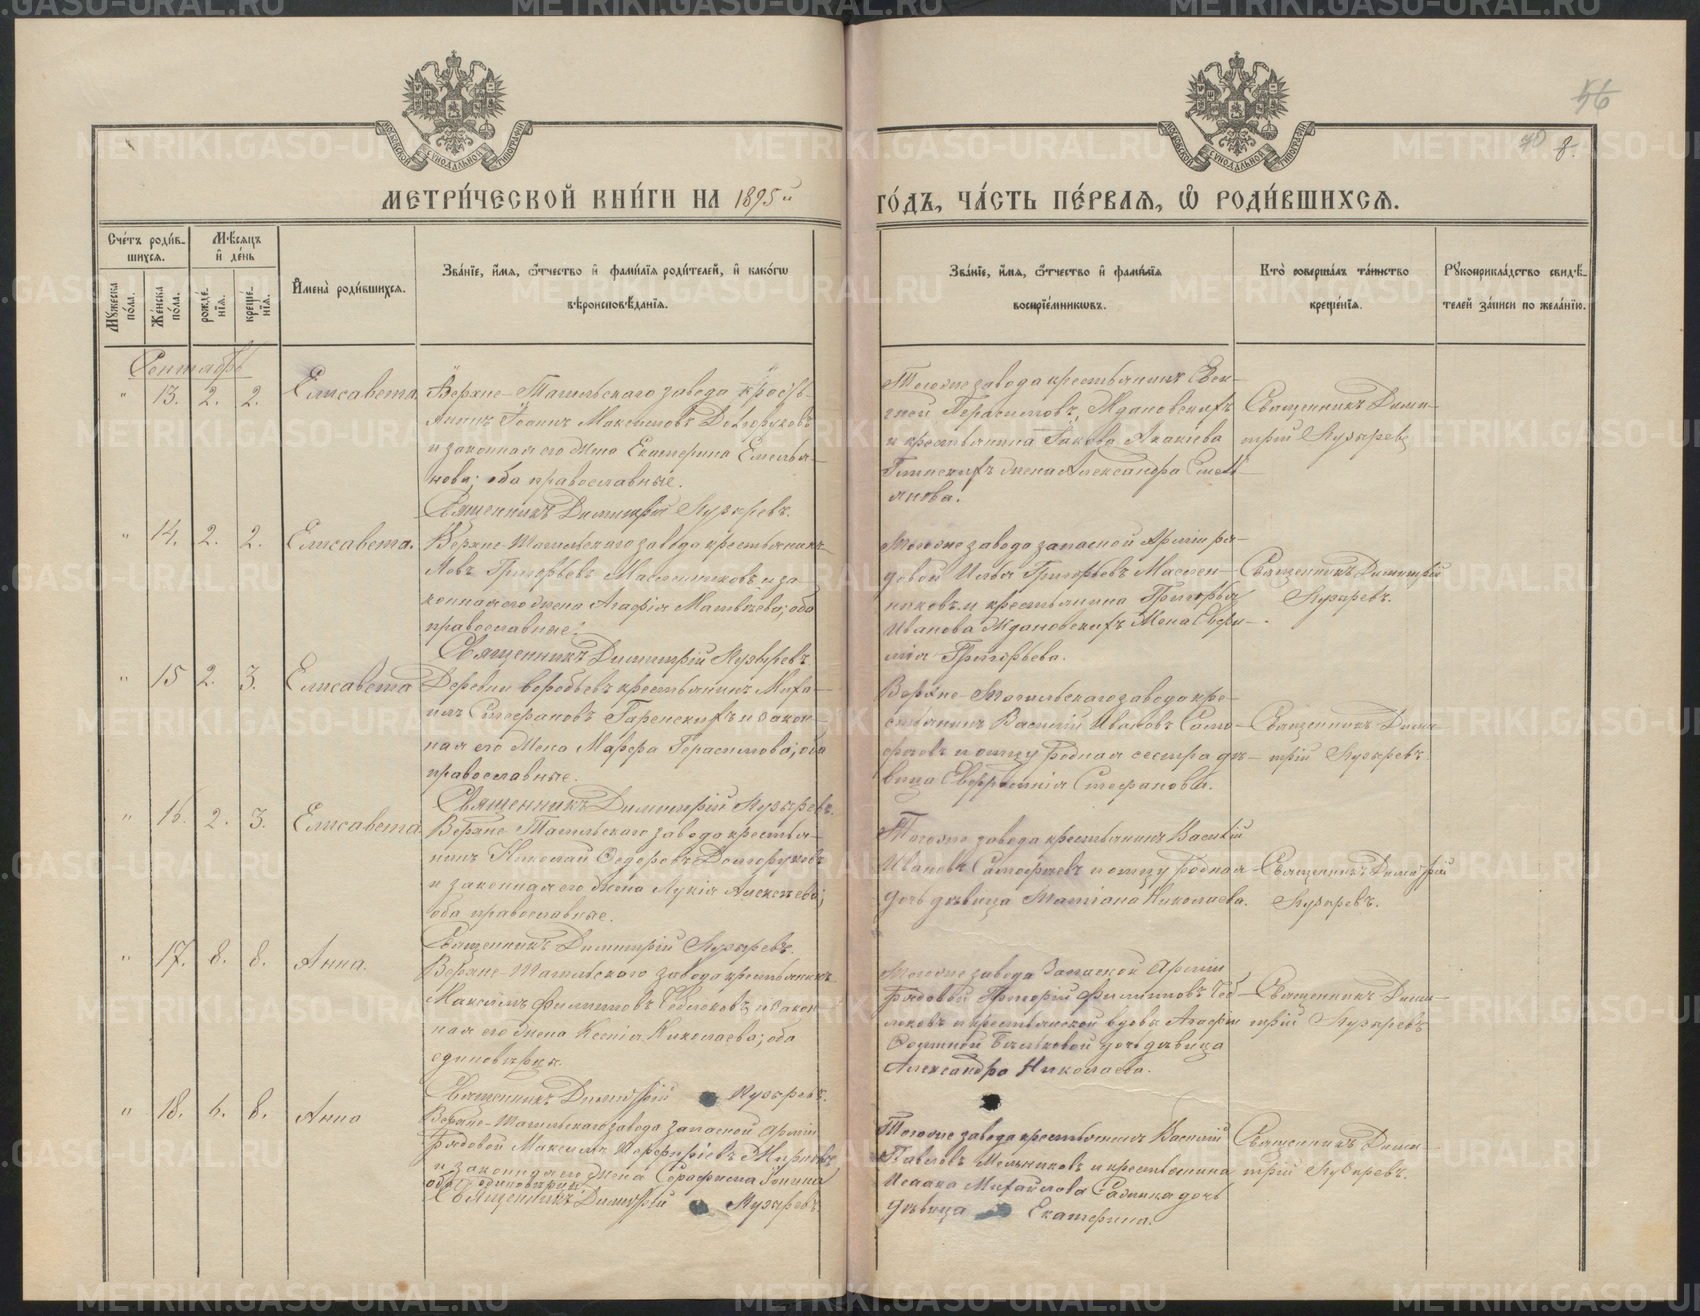 56
40 8.
МЕТРИ́ЧЕСКОЙ КНИ́ГИ НА 1895й ГО́ДЪ, ЧА́СТЬ ПЕ́РВАѦ, Ѡ҆ РОДИ́ВШИХСѦ.
Сче́тъ роди́вшихсѧ.
Мꙋ́жеска по́ла.
Же́нска по́ла.
Мѣ́сѧцъ и҆ де́нь
рожде́нїѧ.
креще́нїѧ.
И҆мена̀ роди́вшихсѧ.
Зва́нїе, и҆́мѧ, ѻ҆́тчество и҆ фами́лїѧ роди́телей, и҆ како́гѡ вѣроисповѣ́данїѧ.
Зва́нїе, и҆́мѧ, ѻ҆́тчество и҆ фами́лїѧ воспрїе́мникѡвъ.
Кто̀ соверша́лъ та́инство креще́нїѧ.
Рꙋкоприкла́дство свидѣ́телей за́писи по жела́нїю.
Сентябрь
" 13. 2. 2. Елисавета.
Верхне-Тагильскаго завода кресть-
янинъ Іоаннъ Максимовъ Долгоруковъ
и законная его жена Екатерина Емелья-
нова; оба православные.
Священникъ Димитрій Пузыревъ.
Тогоже завода крестьянинъ Евге-
ній Герасимовъ Ждановскихъ
и крестьянина Іакова Акакіева
жена Александра Емель-
янова.
Священникъ Дими-
трій Пузыревъ
" 14. 2. 2. Елисавета.
Верхне-Тагильскаго завода крестьянинъ
Григорьевъ Масленниковъ и за-
конная его жена Агафія Матвѣева; оба
православные.
Священникъ Димитрій Пузыревъ
Тогоже завода запасной Арміи ря-
довой Илья Григорьевъ Маслен-
никовъ и крестьянина Григорья
Иванова Ждановскихъ жена
Григорьева.
Священникъ Димитрій
Пузыревъ.
" 15 2. 3. Елисавета
Деревни Воробьевъ крестьянинъ Миха-
илъ Стефановъ Гаренскихъ и закон-
ная его жена Марфа Герасимова; оба
православные.
Священникъ Димитрій Пузыревъ.
Верхне-Тагильскаго завода кре-
стьянинъ Василій Ивановъ
и отцу родная сестра дѣ-
вица Евфросинія Стефанова.
Священникъ Дими-
трій Пузыревъ.
" 16. 2. 3. Елисавета
Верхне-Тагильскаго завода крестья-
нинъ Николай Ѳедоровъ Долгоруковъ
и законная его жена Лукія Алексѣева;
оба православные.
Священникъ Димитрій Пузыревъ.
Тогоже завода крестьянинъ Василій
Ивановъ и отцу родная
дочь дѣвица Татіана Николаева.
Священникъ Димитрій
Пузыревъ.
" 17. 8. 8. Анна.
Верхне-Тагильскаго завода крестьянинъ
Максимъ Филипповъ и закон-
ная его жена Ксенія Николаева; оба
единовѣрцы.
Священникъ Димитрій Пузыревъ.
Тогоже завода запасной Арміи
рядовой Григорій Филипповъ
и крестьянской вдовы Агафіи
дочь дѣвица
Александра Николаева.
Священникъ Дими-
трій Пузыревъ
" 18. 6. 8. Анна
Верхне-Тагильскаго завода запасной Арміи
рядовой Максимъ Порфирьевъ
и законная его жена Серафима
оба единовѣрцы.
Священникъ Димитрій Пузыревъ
Тогоже завода крестьянинъ Василій
Павловъ Мельниковъ и крестьянина
Исаака Михайлова дочь
дѣвица Екатерина.
Священникъ Дими-
трій Пузыревъ.
METRIKI.GASO-URAL.RU